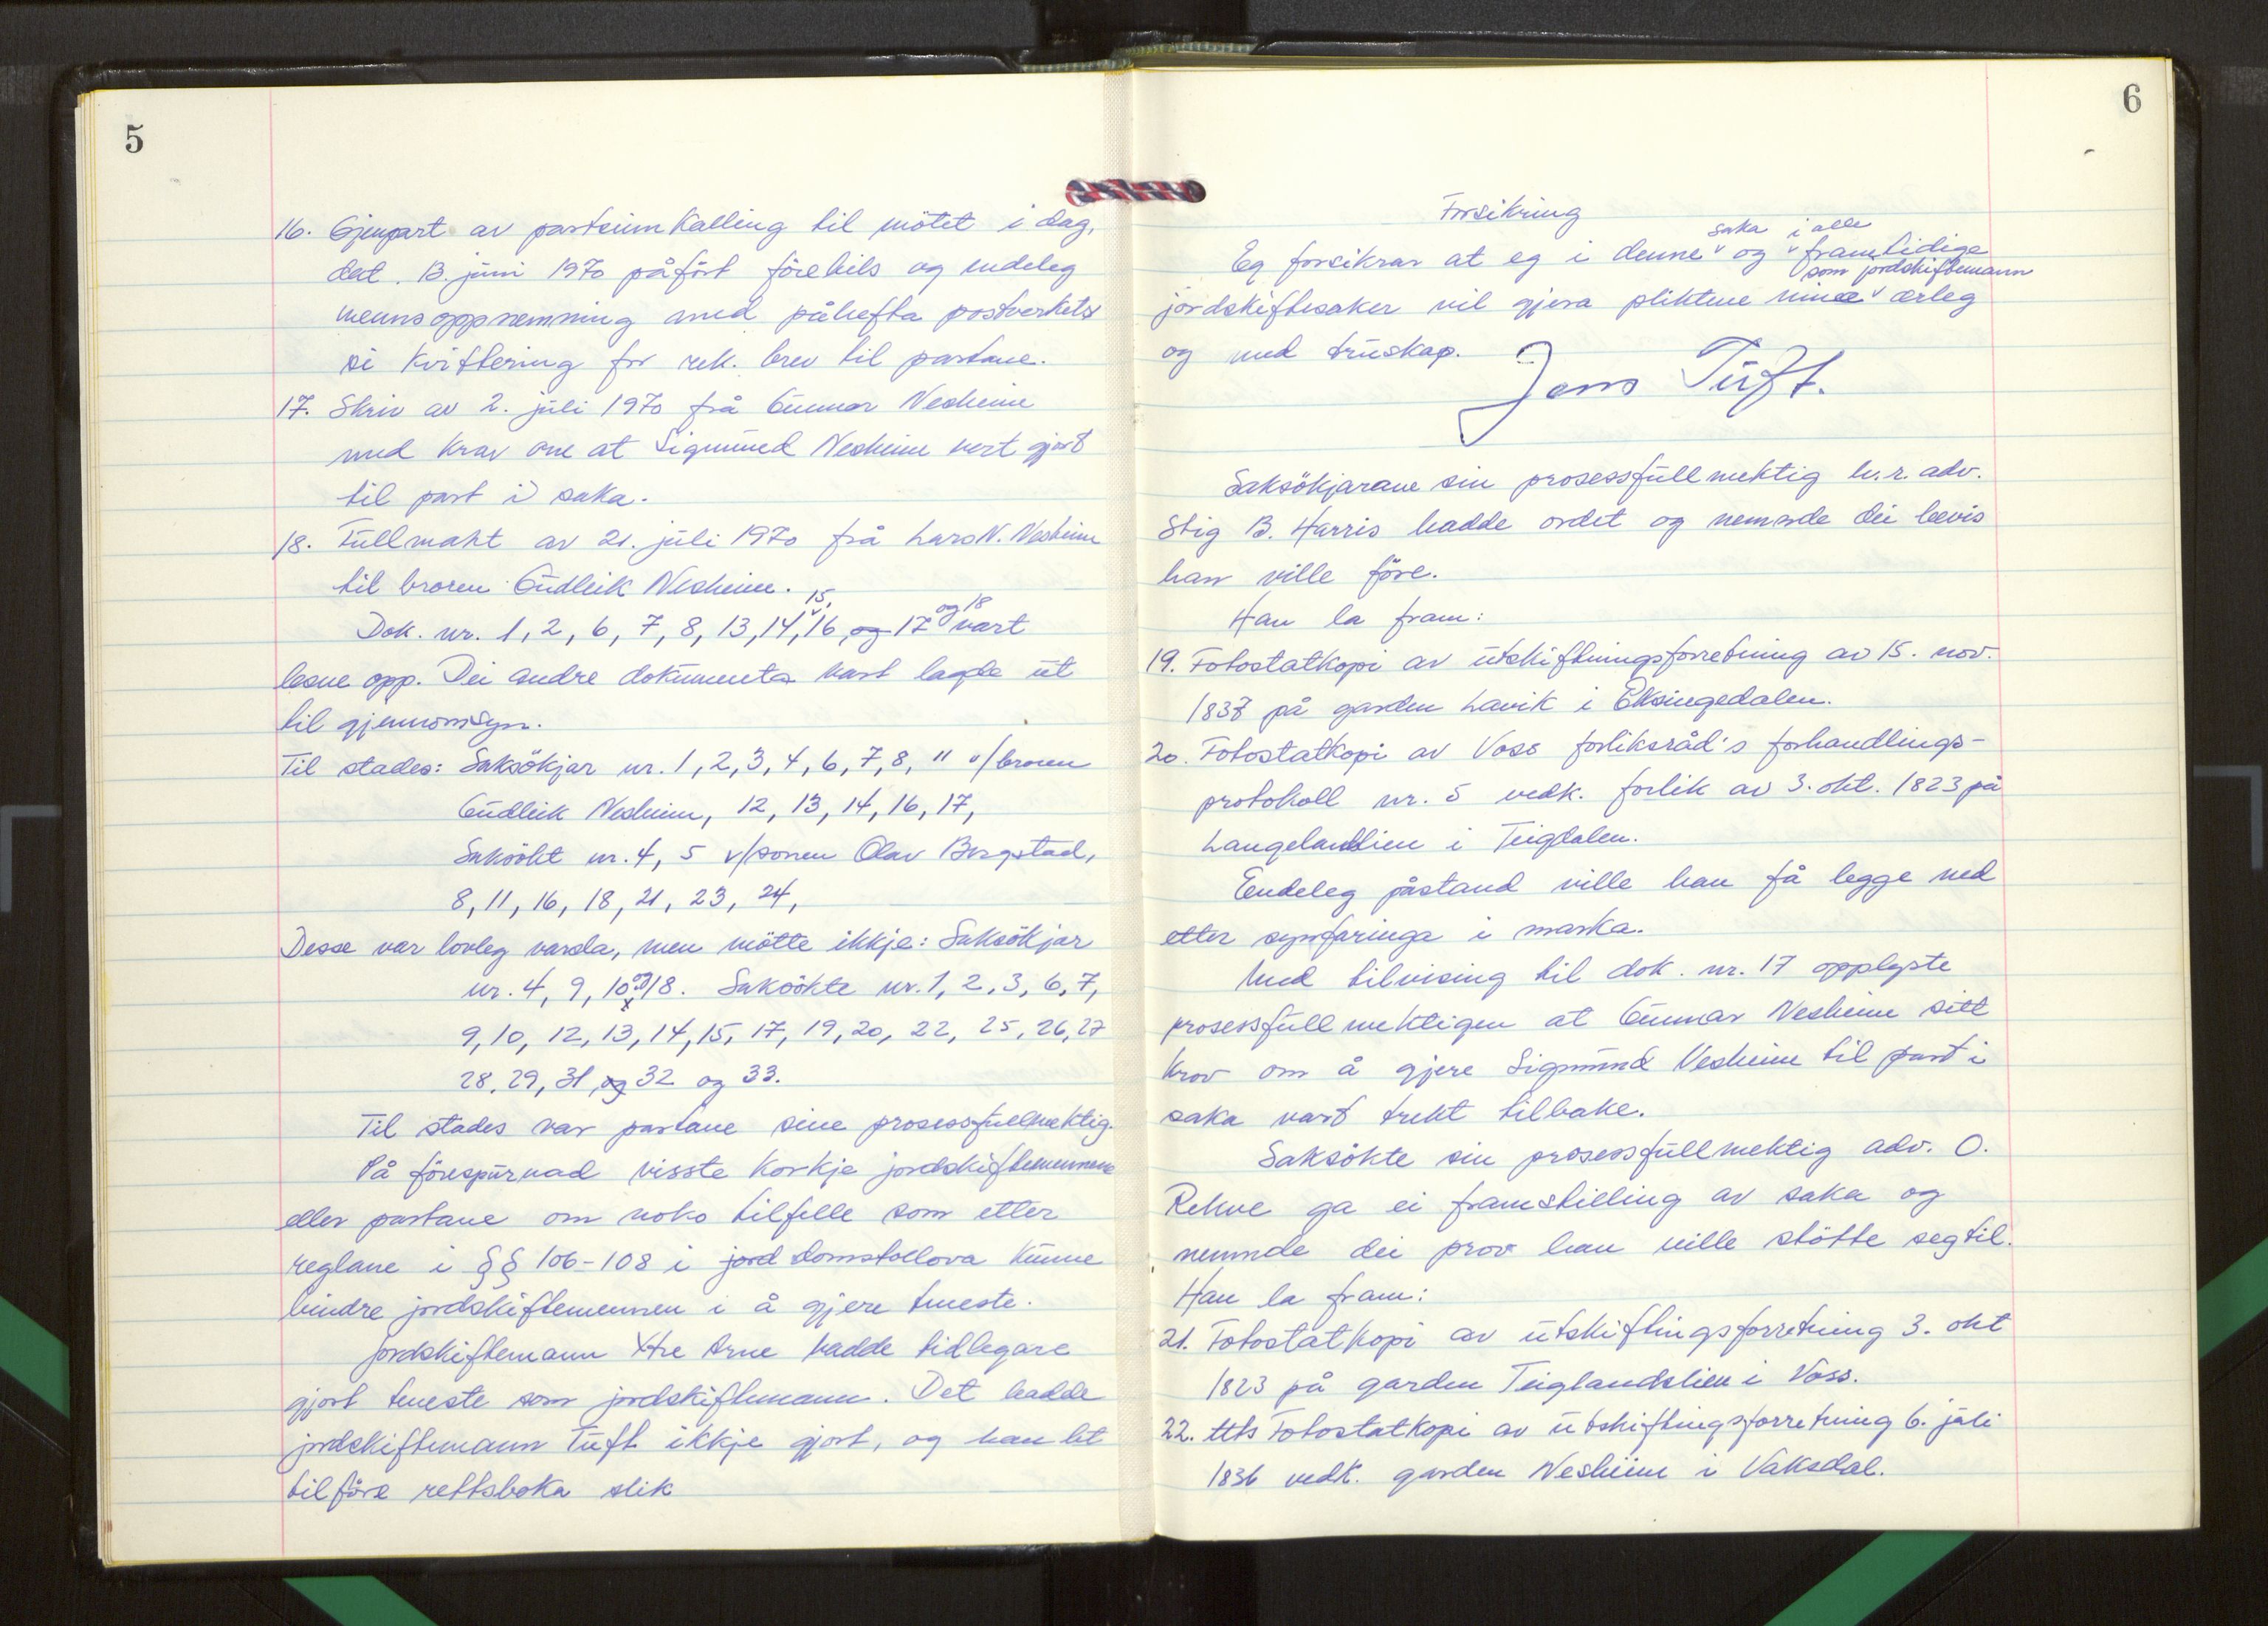 5
16. Gjenpart av partsinnkalling til mötet i dag,
dat. 13. juni 1970 påfört förebils og endeleg
mennsoppnemning med påhefta postverkets
si kvittering for rek. brev til partane.
17. Skriv av 2. juli 1970 frå Gunnar Nesheim
med krav om at Sigmund Nesheim vert gjort
til part i saka.
18. Fullmakt av 21. juli 1970 frå Lars N. Nesheim
til broren Gudleik Nesheim.
Dok. nr. 1, 2, 6, 7, 8, 13, 14, 15, 16, og 17 og 18 vart
lesne opp. Dei andre dokumenta vart lagde ut
til gjennomsyn.
Til stades: Saksökjar nr. 1, 2, 3, 4, 6, 7, 8, 11 v/broren
Gudleik Nesheim, 12, 13, 14, 16, 17,
Saksökt nr. 4, 5 v/sonen Olav Bergstad,
8, 11, 16, 18, 21, 23, 24,
Desse var lovleg varsla, men mötte ikkje: Saksökjar
nr. 4, 9, 10 og 18. Saksökte nr. 1, 2, 3, 6, 7,
9, 10, 12, 13, 14, 15, 17, 19, 20, 22, 25, 26, 27
28, 29, 31, og 32 og 33.
Til stades var partane sine prosessfullmektig.
På förespurnad visste korkje jordskiftemennene
eller partane om noko tilfelle som etter
reglane i §§ 106-108 i jord domstollova kunne
hindre jordskiftemennen i å gjere teneste.
Jordskiftemann Ytre Arne hadde tidlegare
gjort teneste som jordskiftemann. Det hadde
jordskiftemann Tuft ikkje gjort, og han let
tilföre rettsboka slik
6
Forsikring
Eg forsikrar at eg i denne saka og i alle framtidige
jordskiftesaker vil gjera pliktene mine som jordskiftemann ærleg
og med truskap.
Jens Tuft.
Saksökjarane sin prosessfullmektig h.r. adv.
Stig B. Harris hadde ordet og nemnde dei bevis
han ville före.
Han la fram:
19. Fotostatkopi av utskiftningsforretning av 15. nov.
1837 på garden Lavik i Eksingedalen.
20. Fotostatkopi av Voss forliksråd's forhandlings-
protokoll nr. 5 vedk. forlik av 3. okt. 1823 på
Langelandlien i Teigdalen.
Endeleg påstand ville han få legge ned
etter synfaringa i marka.
Med tilvising til dok. nr. 17 opplyste
prosessfullmektigen at Gunnar Nesheim sitt
krav om å gjere Sigmund Nesheim til part i
saka vart trekt tilbake.
Saksökte sin prosessfullmektig adv. O.
Rekve ga ei framstilling av saka og
nemnde dei prov han ville stötte seg til.
Han la fram:
21. Fotostatkopi av utskiftingsforretning 3. okt
1823 på garden Teiglandslien i Voss.
22. Fotostatkopi av utskiftingsforretning 6. juli
1836 vedk. garden Nesheim i Vaksdal.